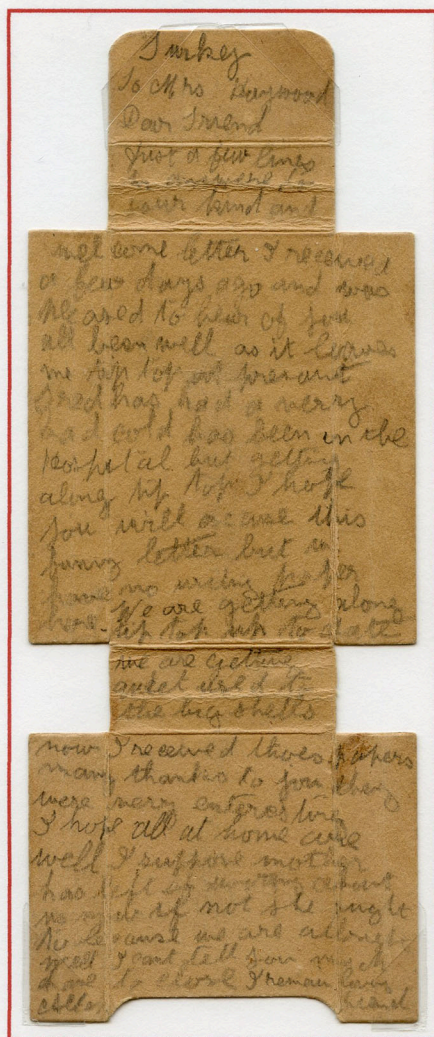 Turkey
To Mrs Haywood
Dear Friend
Just a few lines
in answere to
your kind and
wellcome letter I received
a few days ago and was
pleased to hear of you
all been well as it leaves
me tip top at present
Fred has had a verry
bad cold has been in the
hospital but getting
along tip top I hope
you will excuse this
funny letter but we
have no writing paper
here We are getting along
tip top up to date
we are geting
quiet used to
the big shells
now I received thoes papers
many thanks to you they
were verry enteresting
I hope all at home are
well I suppose mother
has left of worring about
if not she ought
to because we are allright
well I cant tell you much
have to close I remain